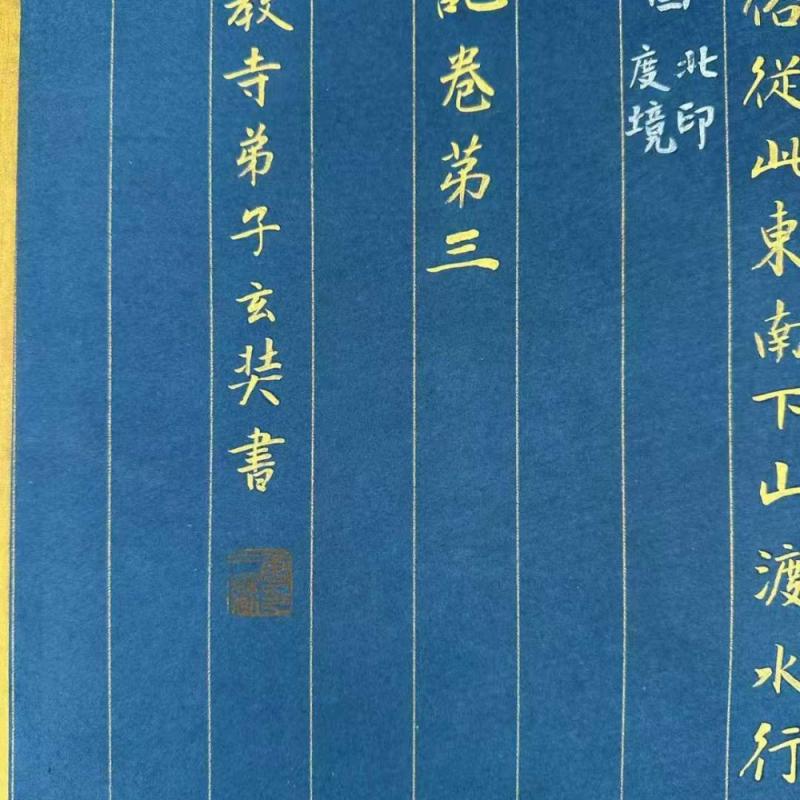 俗從此東南下山渡水行
北印
度境
記卷苐三
教寺弟子玄奘書